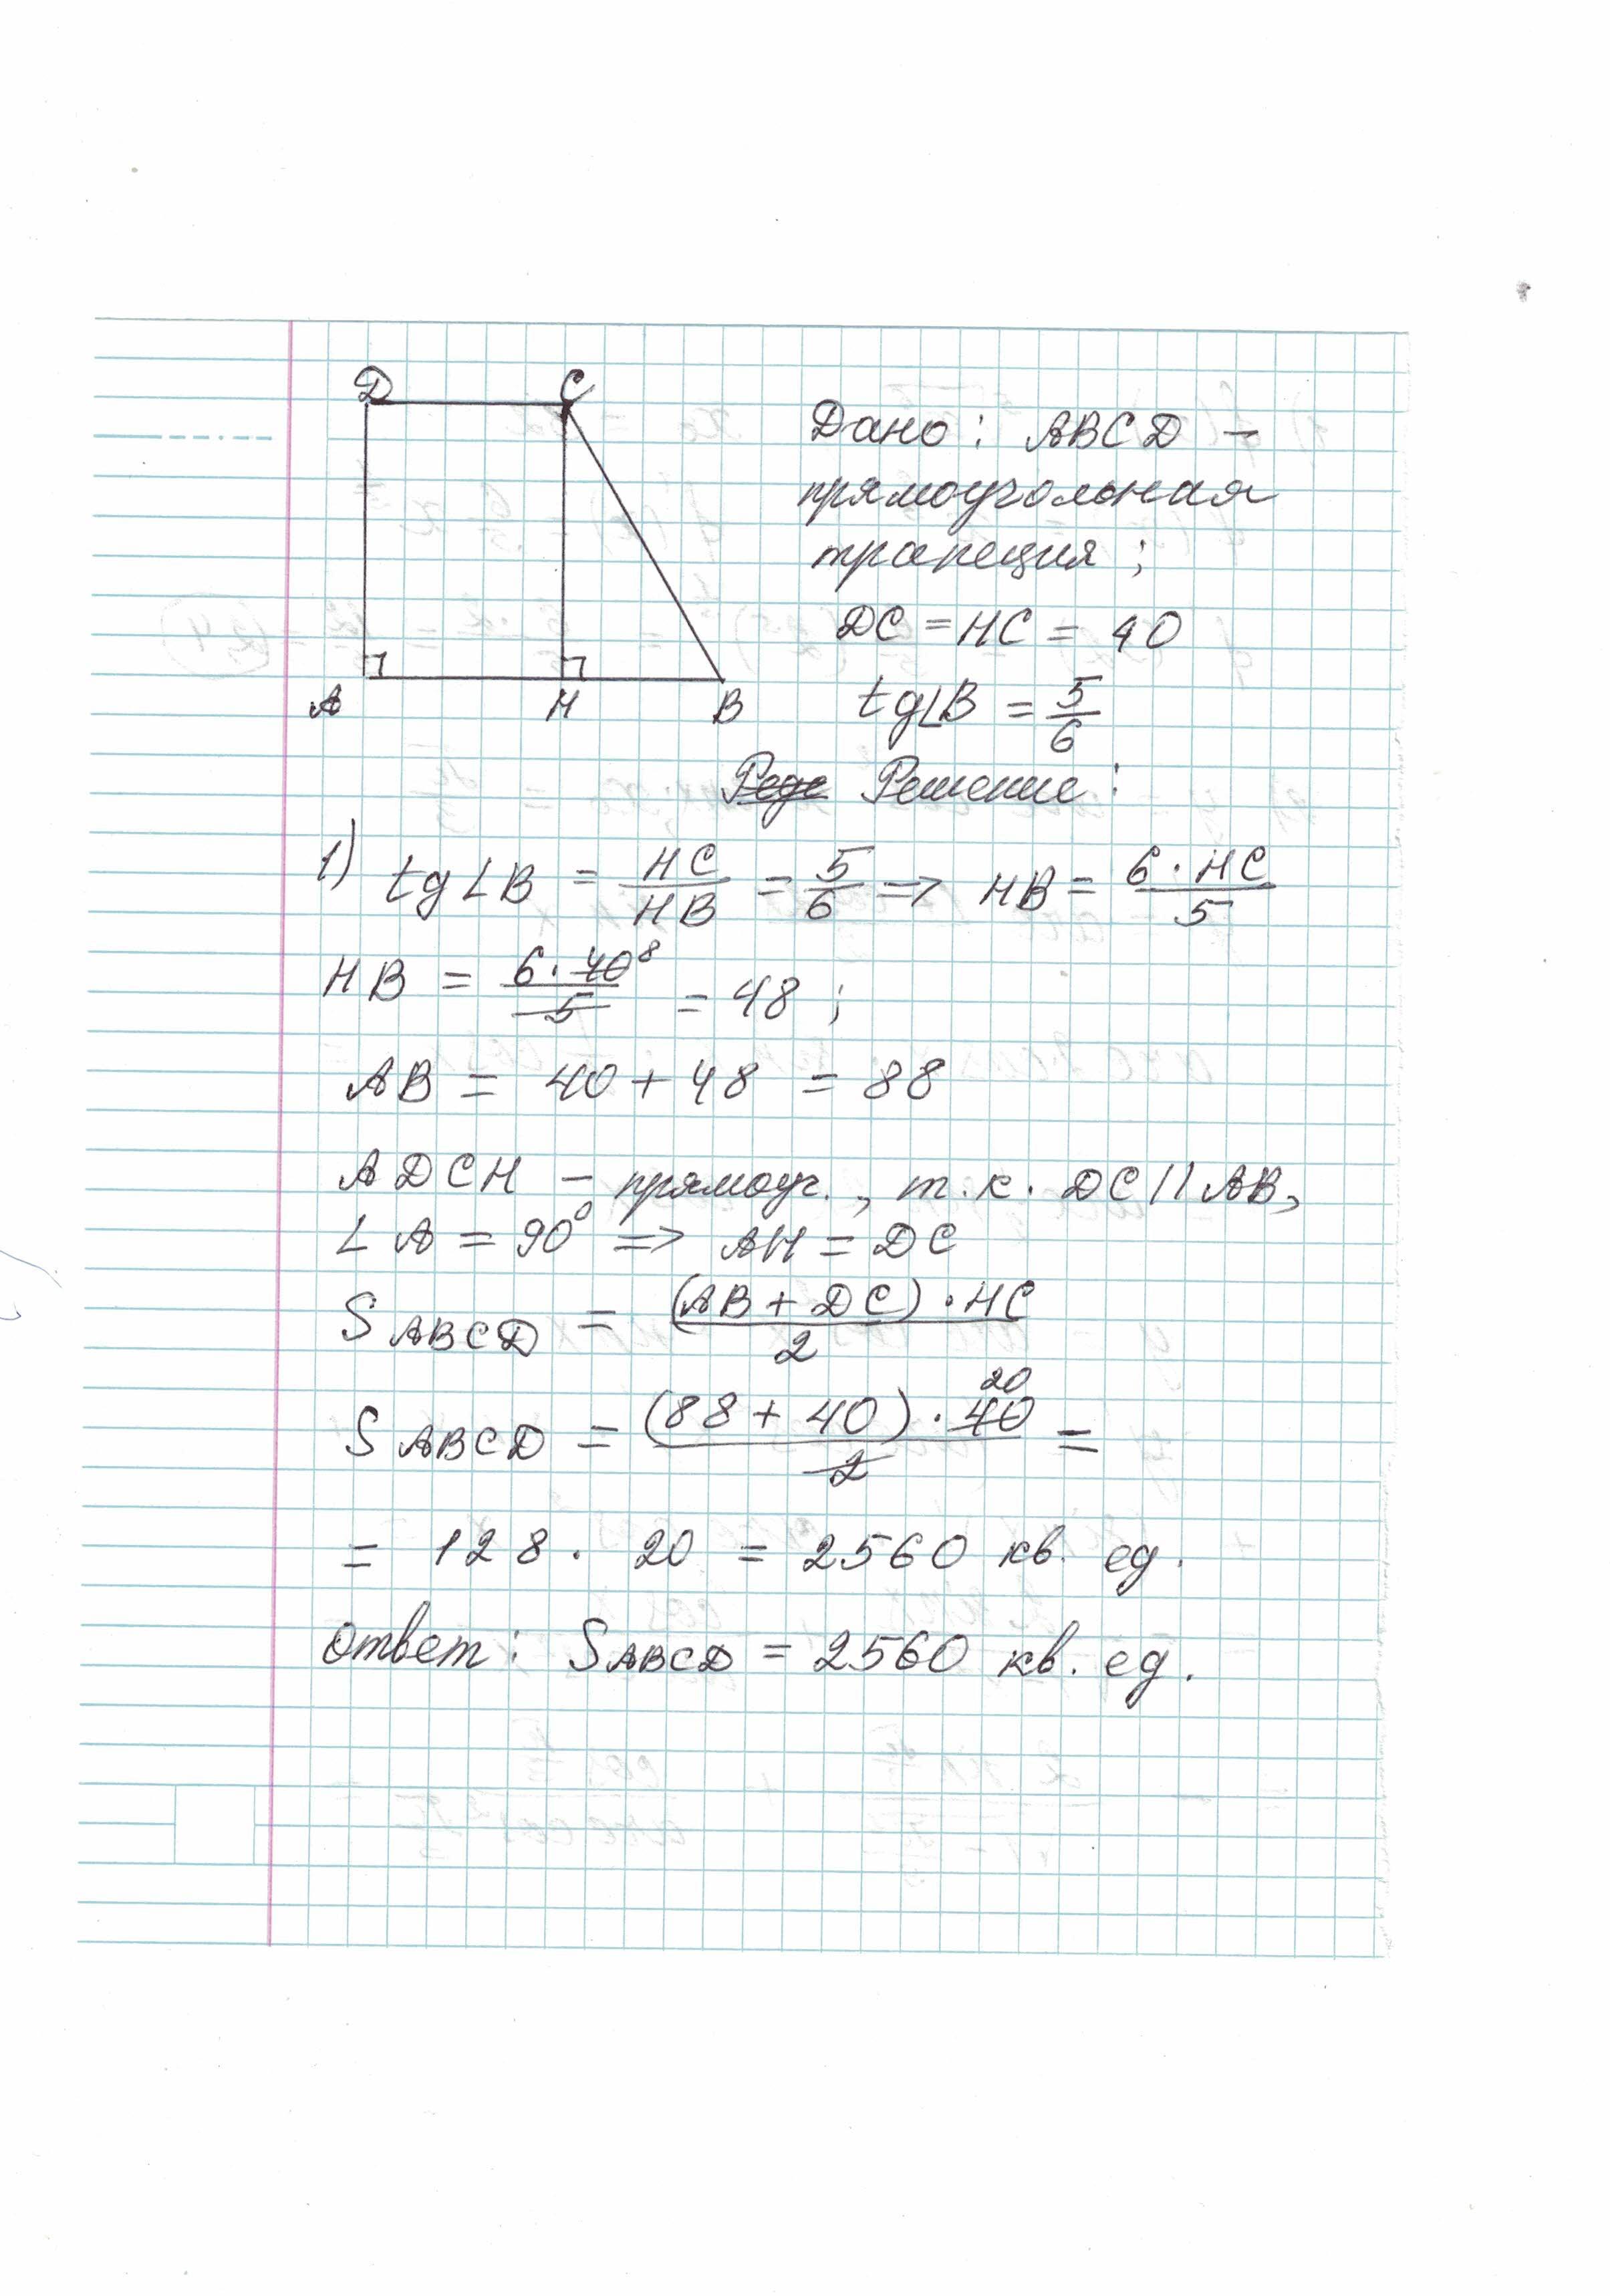 D C
A H B
Дано: ABCD –
прямоугольная
трапеция;
DC = HC = 40
tg∠B = 5/6
Решение:
1) tg∠B = HC/HB = 5/6 => HB = 6·HC/5
HB = 6·40⁸/5 = 48;
AB = 40 + 48 = 88
ADCH – прямоуг., т.к. DC || AB,
∠A = 90° => AH = DC
S ABCD = (AB + DC)·HC/2
20
S ABCD = (88 + 40)·40/2 =
= 128 · 20 = 2560 кв. ед.
Ответ: S ABCD = 2560 кв. ед.